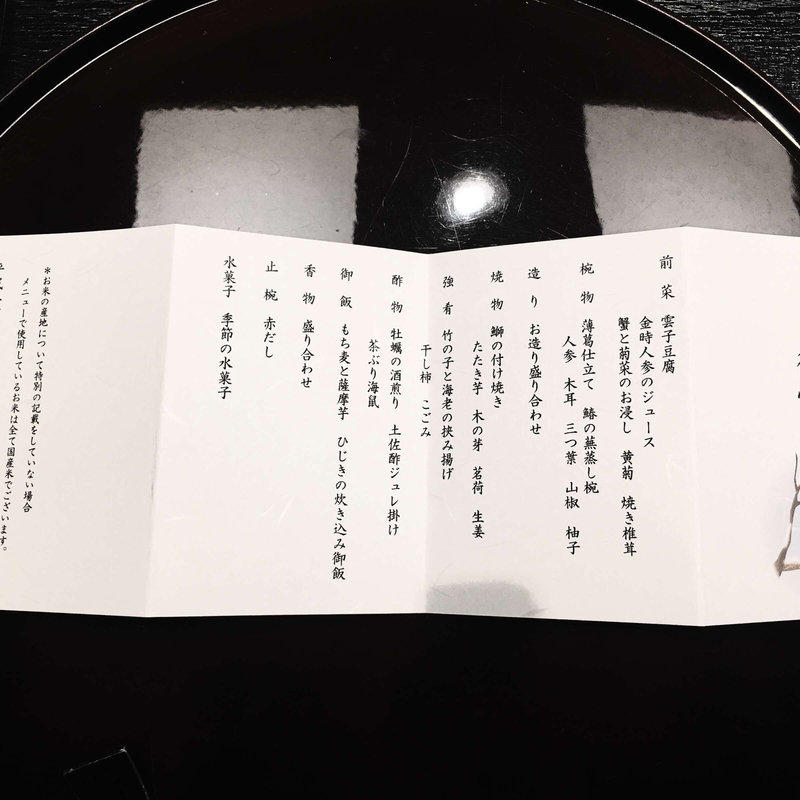 前菜 雲子豆腐
金時人参のジュース
蟹と菊菜のお浸し 黄菊 焼き椎茸
椀物 薄葛仕立て 鰆の蕪蒸し椀
人参 木耳 三つ葉 山椒 柚子
造り お造り盛り合わせ
焼物 鰤の付け焼き
たたき芋 木の芽 茗荷 生姜
強肴 竹の子と海老の挟み揚げ
干し柿 こごみ
酢物 牡蠣の酒煎り 土佐酢ジュレ掛け
茶ぶり海鼠
御飯 もち麦と薩摩芋 ひじきの炊き込み御飯
香物 盛り合わせ
止椀 赤だし
水菓子 季節の水菓子
*お米の産地について特別の記載をしていない場合
メニューで使用しているお米は全て国産米でございます。